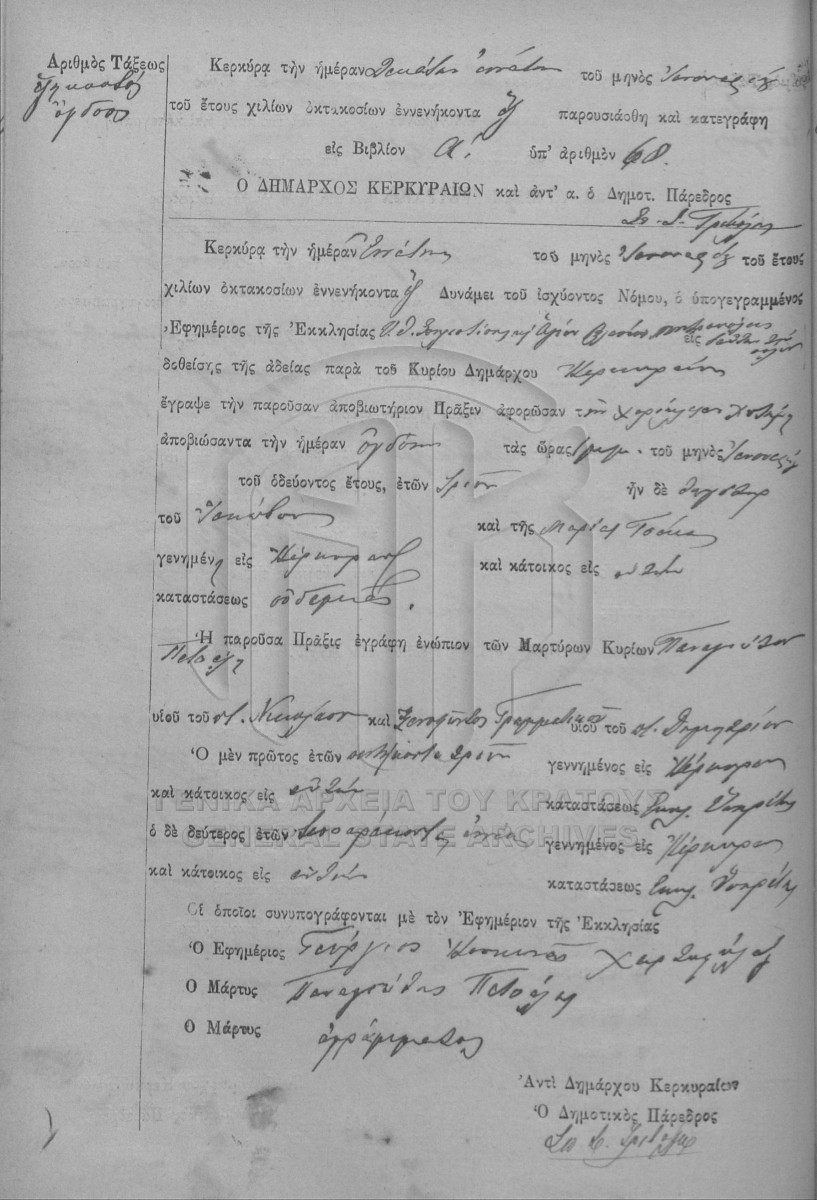 Ἀριθμὸς Τάξεως
ἑξηκοστὸς
ὄγδοος
Κερκύρᾳ τὴν ἡμέραν Δεκάτην ἐννάτην τοῦ μηνὸς Ἰανουαρίου
τοῦ ἔτους χιλίων ὀκτακοσίων ἐννενήκοντα παρουσιάσθη καὶ κατεγράφη
εἰς Βιβλίον Α! ὑπ' ἀριθμὸν 68.
Ο ΔΗΜΑΡΧΟΣ ΚΕΡΚΥΡΑΙΩΝ καὶ ἀντ' α. ὁ Δημοτ. Πάρεδρος
Κερκύρᾳ τὴν ἡμέραν Ἐννάτην τοῦ μηνὸς Ἰανουαρίου τοῦ ἔτους
χιλίων ὀκτακοσίων ἐννενήκοντα Δυνάμει τοῦ ἰσχύοντος Νόμου, ὁ ὑπογεγραμμένος
Ἐφημέριος τῆς Ἐκκλησίας εἰς
δοθείσης τῆς ἀδείας παρὰ τοῦ Κυρίου Δημάρχου Κερκυραίων
ἔγραψε τὴν παροῦσαν ἀποβιωτήριον Πρᾶξιν ἀφορῶσαν τὴν
ἀποβιώσαντα τὴν ἡμέραν ὀγδόην τὰς ὥρας τοῦ μηνὸς Ἰανουαρίου
τοῦ ὁδεύοντος ἔτους, ἐτῶν τριῶν ἦν δὲ θυγάτηρ
τοῦ Ἰακώβου καὶ τῆς Μαρίας
γενημένη εἰς Κέρκυραν καὶ κάτοικος εἰς αὐτὴν
καταστάσεως οὐδεμιᾶς.
Ἡ παροῦσα Πρᾶξις ἐγράφη ἐνώπιον τῶν Μαρτύρων Κυρίων Παναγιώτου
Πετσάλη
υἱοῦ τοῦ π. Νικολάου καὶ Ξενοφῶντος Γραμματικοῦ υἱοῦ τοῦ π. Δημητρίου
Ὁ μὲν πρῶτος ἐτῶν γεννημένος εἰς Κέρκυραν
καὶ κάτοικος εἰς αὐτὴν καταστάσεως Ἐκκλ. Ὑπηρέτης
ὁ δὲ δεύτερος ἐτῶν τεσσαράκοντα γεννημένος εἰς Κέρκυραν
καὶ κάτοικος εἰς αὐτὴν καταστάσεως Ἐκκλ. Ὑπηρέτης
Οἱ ὁποῖοι συνυπογράφονται μὲ τὸν Ἐφημέριον τῆς Ἐκκλησίας
Ὁ Ἐφημέριος Γεώργιος
Ο Μάρτυς Παναγιώτης Πετσάλης
Ο Μάρτυς ἀγράμματος
Ἀντὶ Δημάρχου Κερκυραίων
Ὁ Δημοτικὸς Πάρεδρος
ΓΕΝΙΚΑ ΑΡΧΕΙΑ ΤΟΥ ΚΡΑΤΟΥΣ
GENERAL STATE ARCHIVES